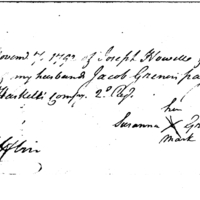 Novem 7, 1792 of Joseph Howell
my husband Jacob
Haskells Compy 2d Regt
her
Susanna X
mark